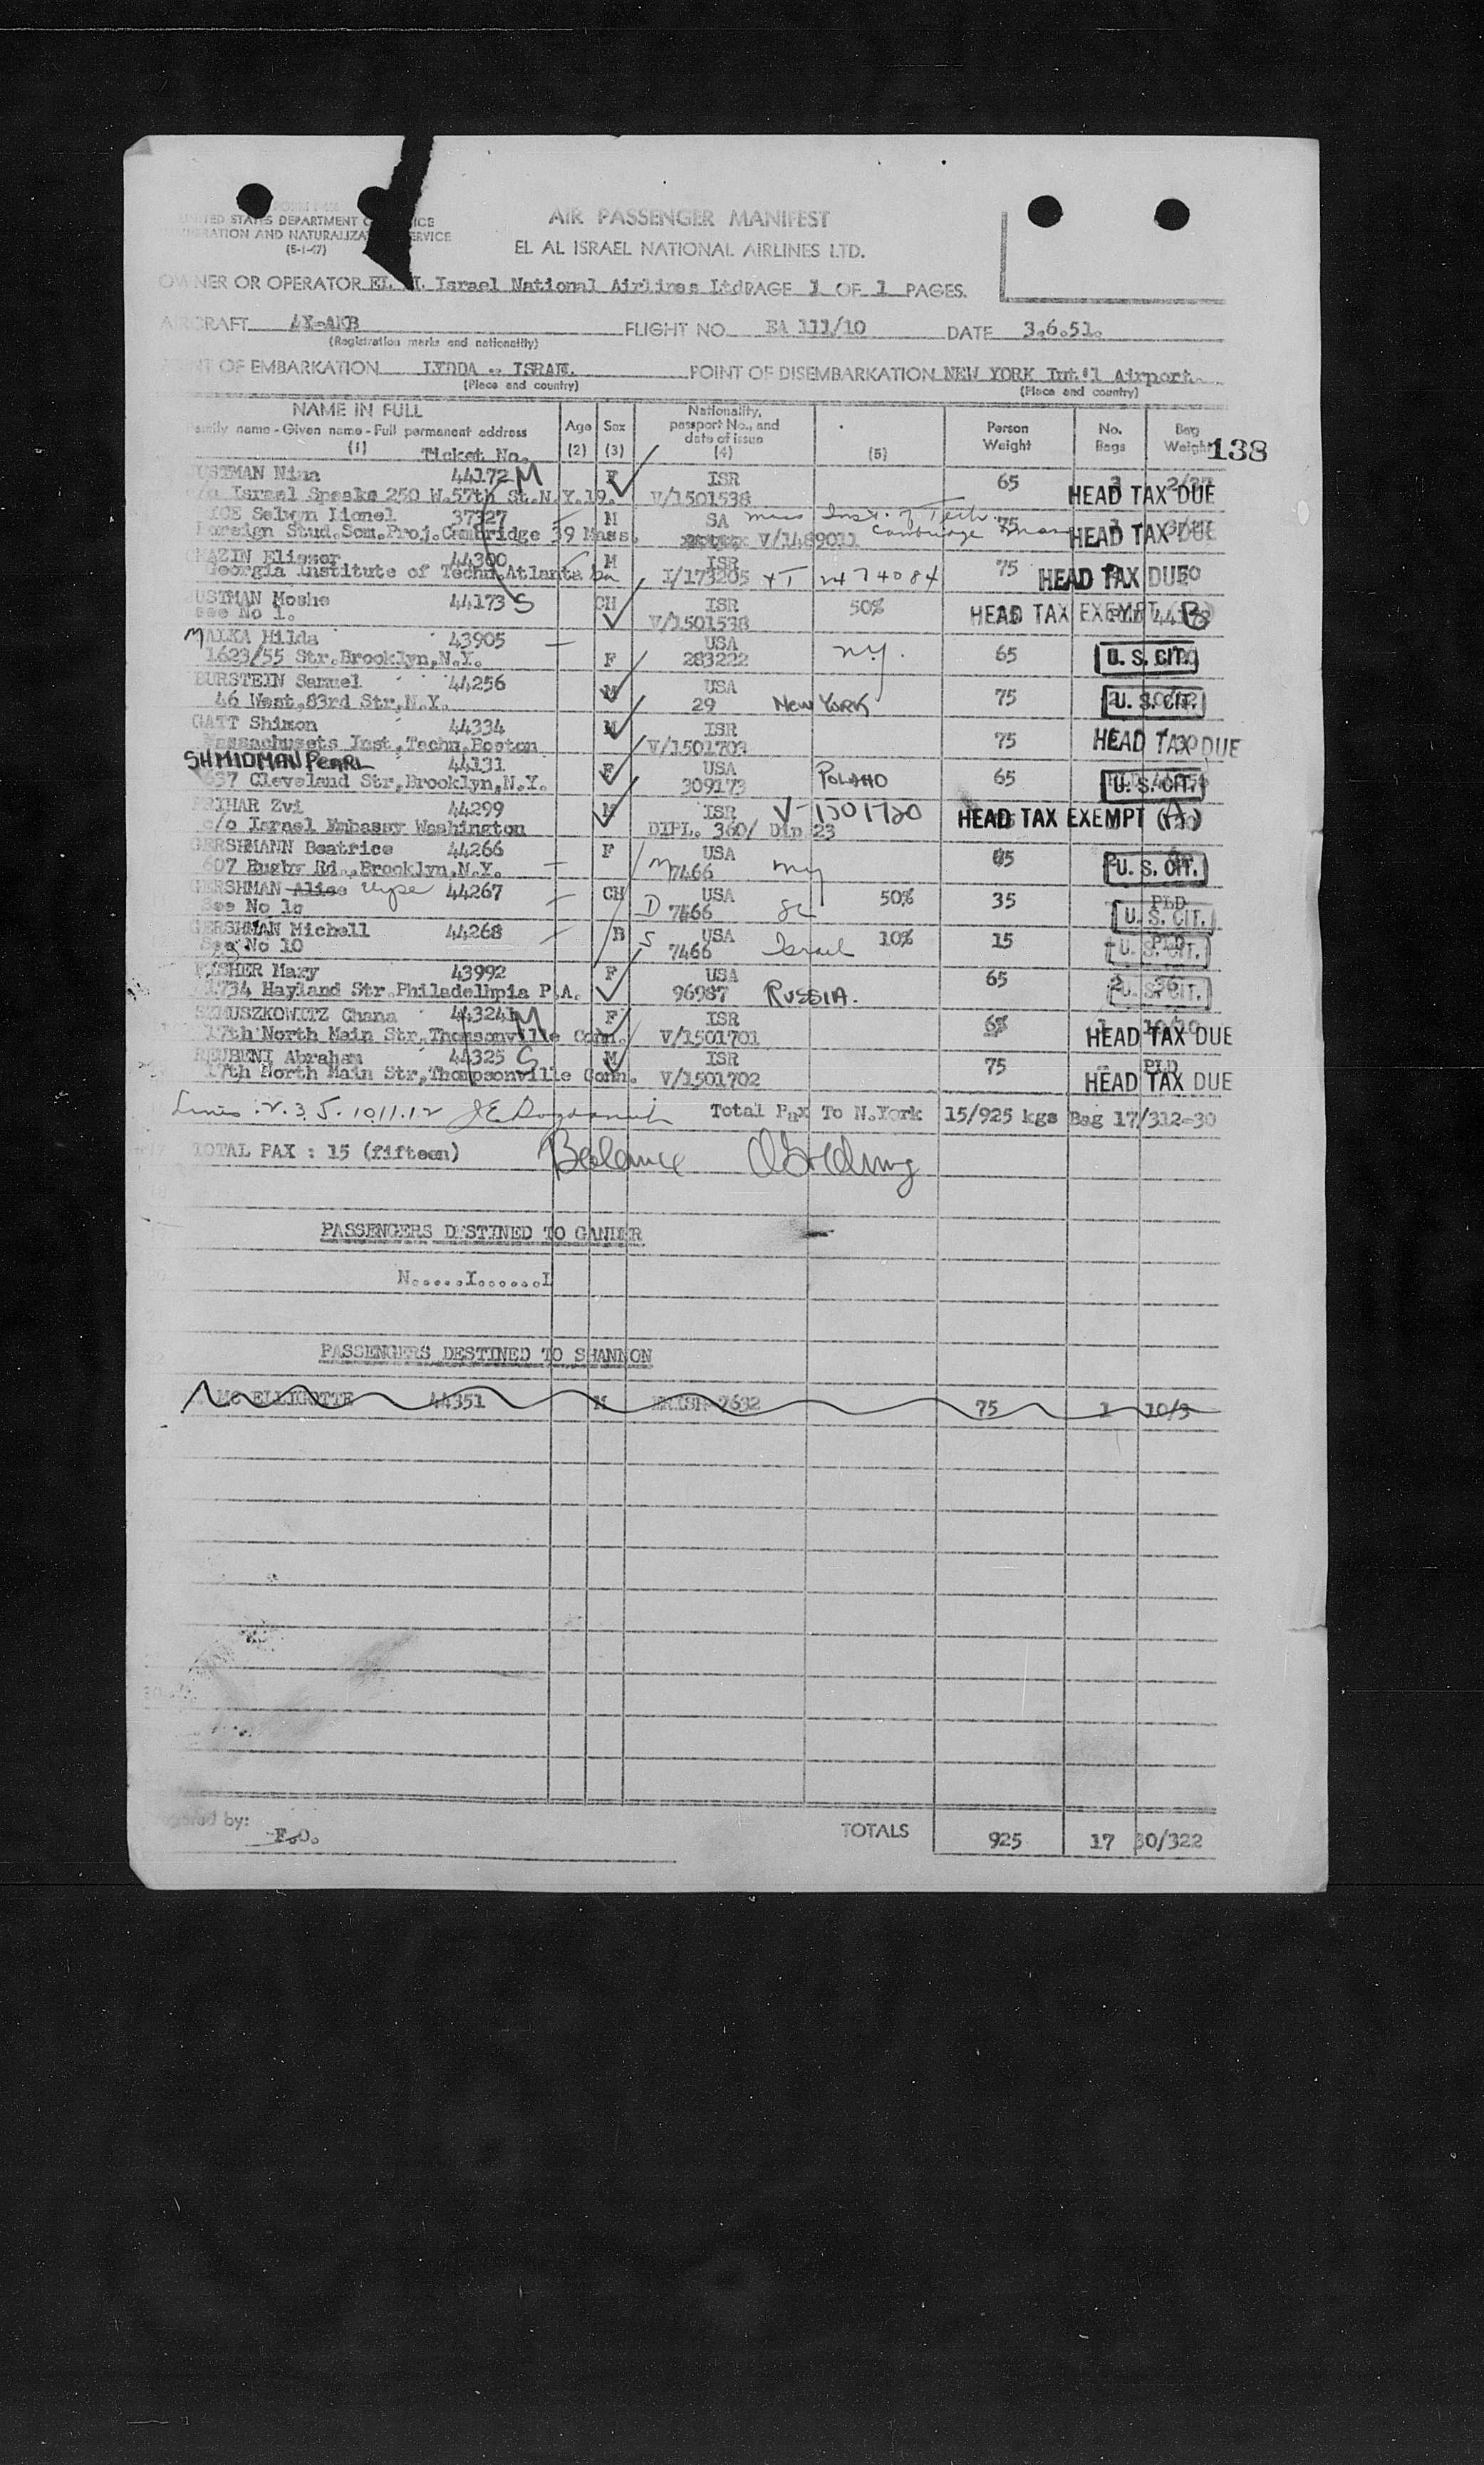 UNITED STATES DEPARTMENT OF JUSTICE
IMMIGRATION AND NATURALIZATION SERVICE
(5-1-47)
AIR PASSENGER MANIFEST
EL AL ISRAEL NATIONAL AIRLINES LTD.
OWNER OR OPERATOR EL AL Israel National Airlines Ltd PAGE 1 OF 1 PAGES.
AIRCRAFT 4X-AKB FLIGHT NO. EA 111/10 DATE 3.6.51.
(Registration marks and nationality)
POINT OF EMBARKATION LYDDA - ISRAEL. POINT OF DISEMBARKATION NEW YORK Int'l Airport.
(Place and country) (Place and country)
NAME IN FULL Age Sex Nationality, passport No., and date of issue Person Weight No. Bags Bag Weight 138
Family name - Given name - Full permanent address
(1) Ticket No. (2) (3) (4) (5)
USTMAN Nina 44172 M F ISR 65 3 2/37
c/o Israel Speaks 250 W.57th St.N.Y.19. V/1501538 HEAD TAX DUE
ICE Selwyn Lionel 37327 M SA Mass Inst. of Tech. 75
Foreign Stud.Som.Proj.Cambridge 39 Mass. V/1489011 Cambridge Mass HEAD TAX DUE
HAZIN Eliezer 44300 M ISR 75
Georgia Institute of Techn.Atlanta Ga I/173205 HEAD TAX DUE
USTMAN Moshe 44173 S CH ISR 50% HEAD TAX EXEMPT B
see No 1. V/1501538
MALKA Hilda 43905 USA
1623/55 Str.Brooklyn,N.Y. F 283222 N.Y. 65 U. S. CIT.
BURSTEIN Samuel 44256 M USA 75
46 West,83rd Str,N.Y. 29 NEW YORK U. S. CIT.
GATT Shimon 44334 M ISR 75
Massachusets Inst.Techn.Boston V/1501703 HEAD TAX DUE
SHMIDMAN PEARL 44131 F USA POLAND 65
637 Cleveland Str,Brooklyn,N.Y. 309173 U. S. CIT.
PRIHAR Zvi 44299 M ISR V-1501720 HEAD TAX EXEMPT (A)
c/o Israel Embassy Washington DIPL. 360/ Dip 23
GERSHMANN Beatrice 44266 F USA
607 Rugby Rd.,Brooklyn,N.Y. M 7466 NY U. S. CIT.
GERSHMAN Alise 44267 CH USA 50% 35 PLD
See No 10 D 7466 U. S. CIT.
GERSHMAN Michell 44268 B S USA Israel 10% 15 PLD
See No 10 7466 U. S. CIT.
FISHER Mary 43992 F USA 65
1734 Hayland Str.Philadelhpia P.A. 96987 RUSSIA. U. S. CIT.
SZMUSZKOWITZ Chana 44324 M F ISR 65 1
17th North Main Str.Thomsonville Conn. V/1501701 HEAD TAX DUE
REUBENI Abraham 44325 S M ISR 75 PLD
17th North Main Str,Thompsonville Conn. V/1501702 HEAD TAX DUE
Lines .2.3.5.10.11.12 Total Pax To N.York 15/925 kgs Bag 17/312-30
TOTAL PAX : 15 (fifteen) Balance
PASSENGERS DESTINED TO GANDER
N.....I.......L
PASSENGERS DESTINED TO SHANNON
MC ELLIGOTTE 44351 M IRISH 7632 75 1 10/3
F.O.
TOTALS 925 17 30/322